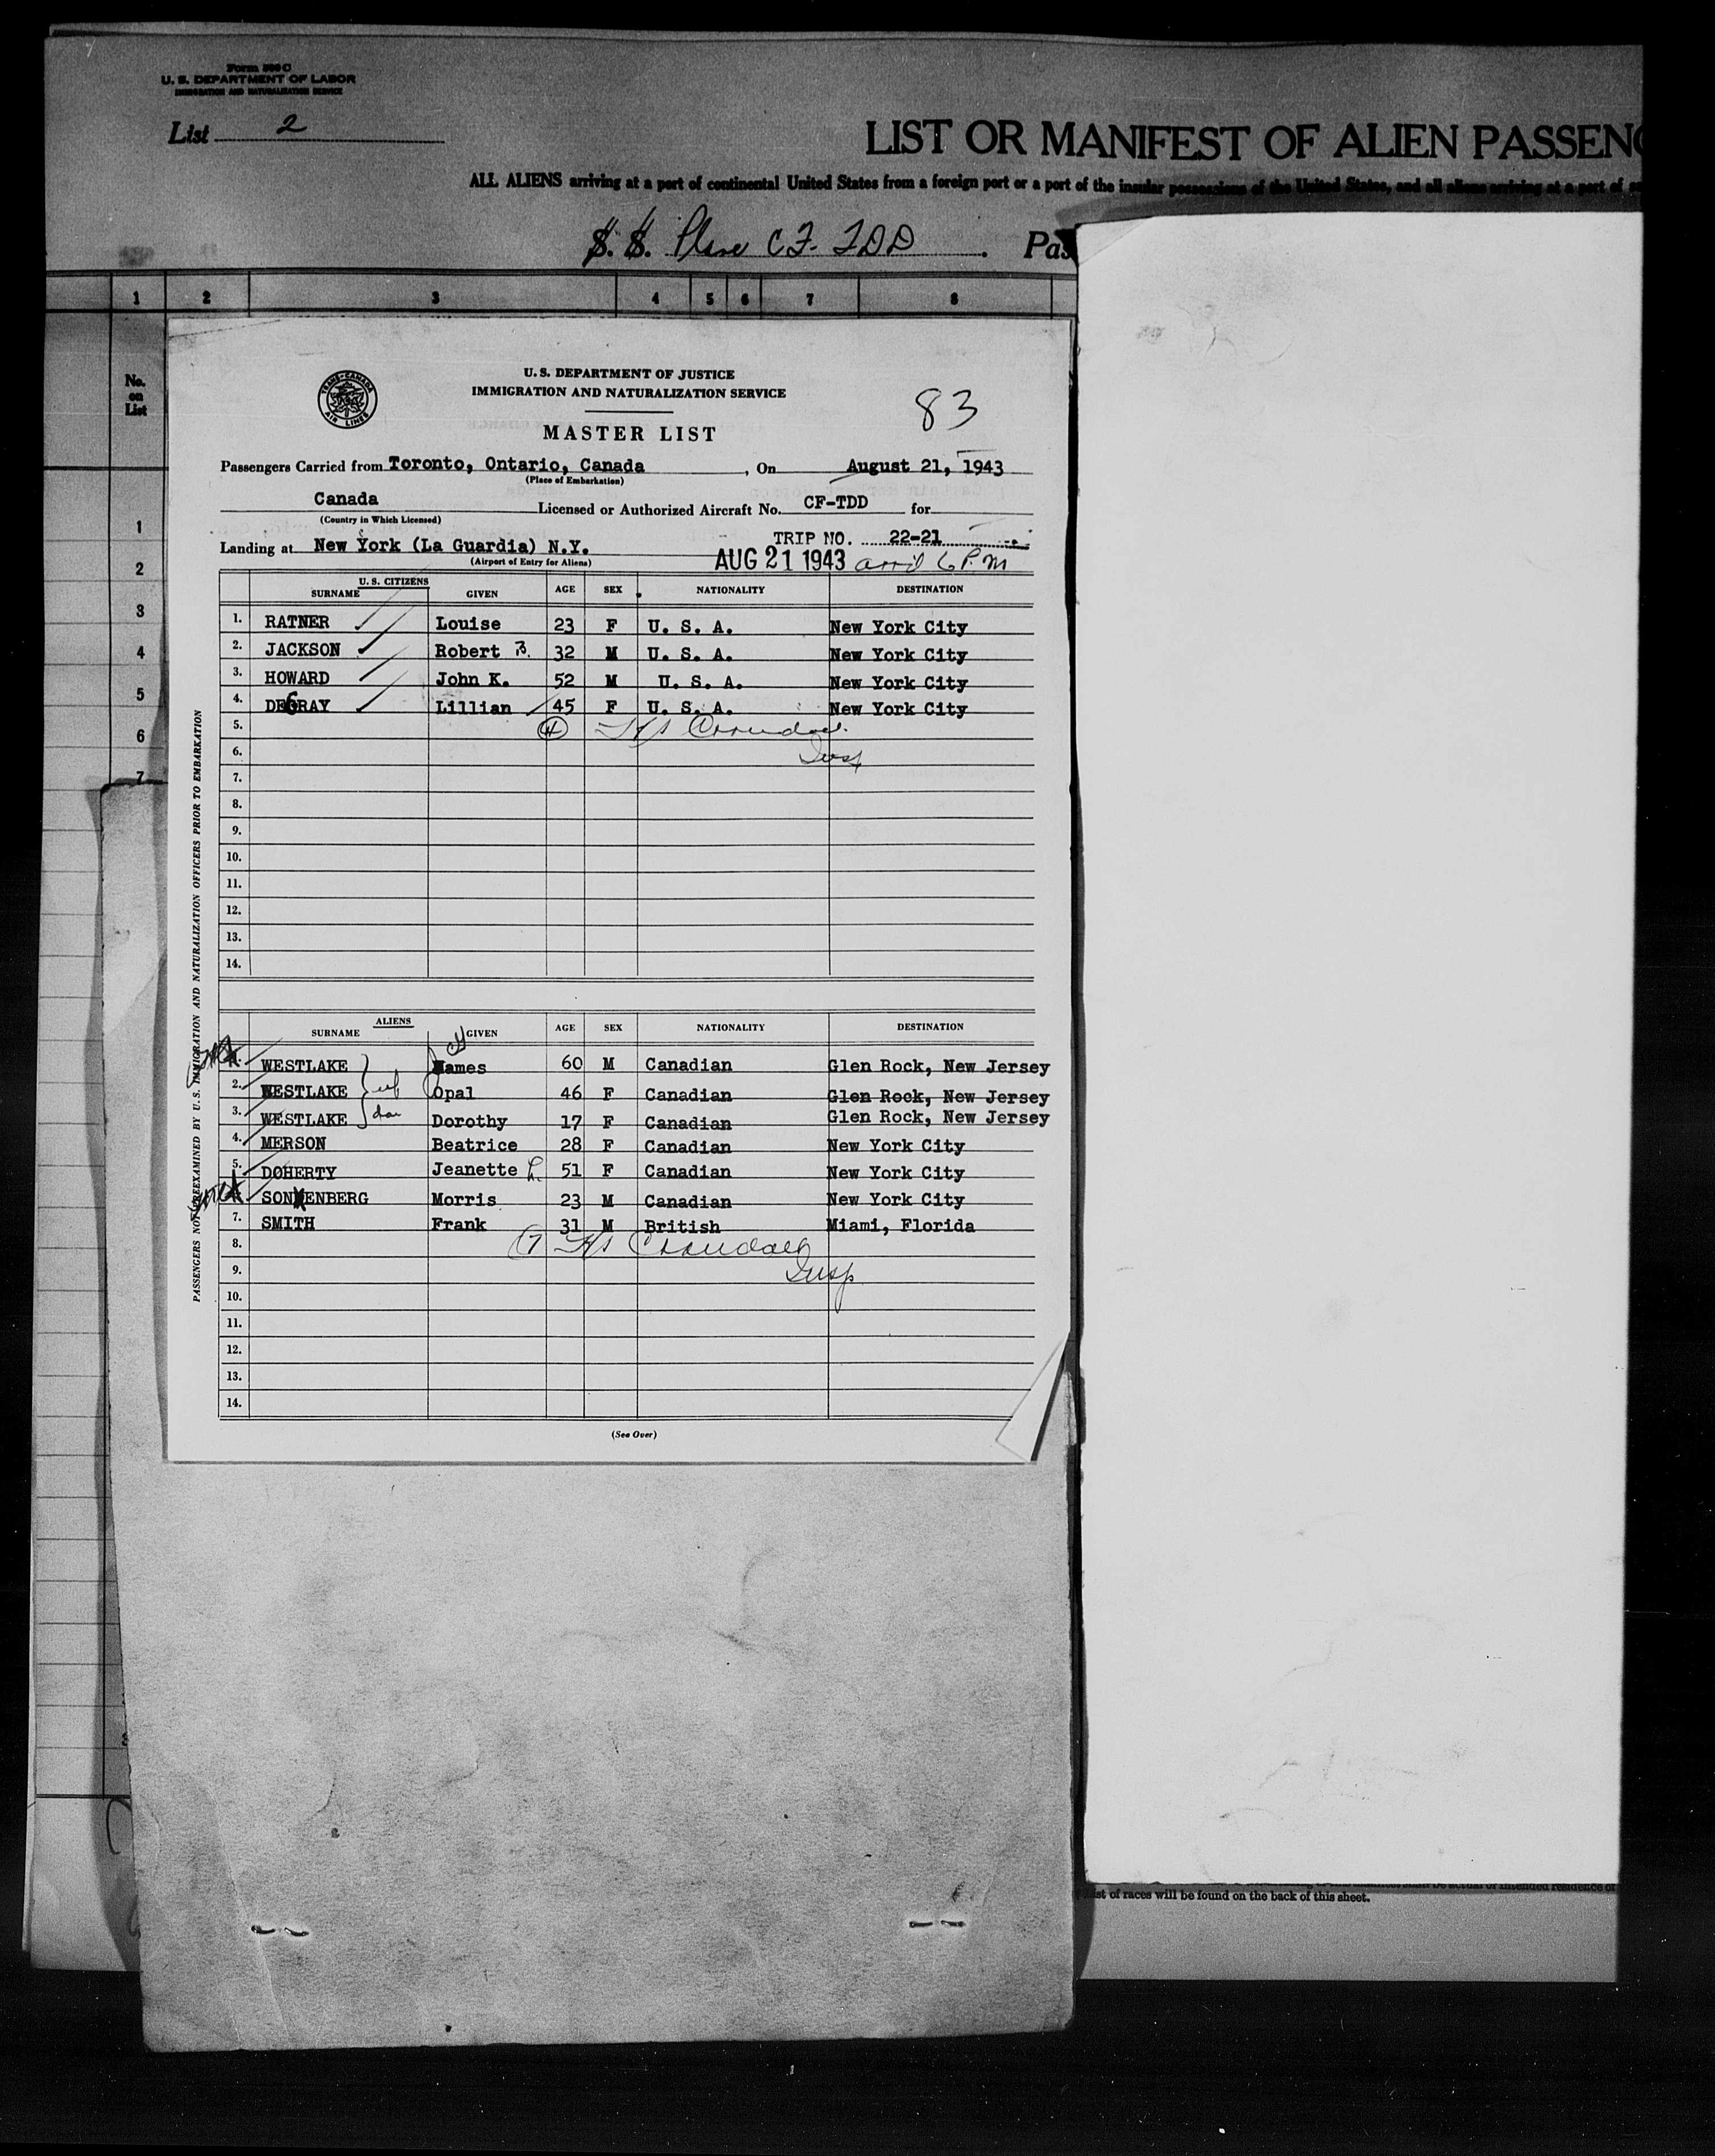 Form 500 C
U. S. DEPARTMENT OF LABOR
IMMIGRATION AND NATURALIZATION SERVICE
List 2
LIST OR MANIFEST OF ALIEN PASSENG
ALL ALIENS arriving at a port of continental United States from a foreign port or a port of the insular possessions of the United States, and all aliens arriving at a port of
S. S. Plane CF-TDD. Pas
1 2 3 4 5 6 7 8
No. on List
1
2
3
4
5
6
7
TRANS-CANADA AIR LINES
U. S. DEPARTMENT OF JUSTICE
IMMIGRATION AND NATURALIZATION SERVICE
83
MASTER LIST
Passengers Carried from Toronto, Ontario, Canada, On August 21, 1943
(Place of Embarkation)
Canada Licensed or Authorized Aircraft No. CF-TDD for
(Country in Which Licensed)
TRIP NO. 22-21
Landing at New York (La Guardia) N.Y. AUG 21 1943 arrd 6 P.M
(Airport of Entry for Aliens)
U. S. CITIZENS
SURNAME GIVEN AGE SEX NATIONALITY DESTINATION
1. RATNER Louise 23 F U. S. A. New York City
2. JACKSON Robert B. 32 M U. S. A. New York City
3. HOWARD John K. 52 M U. S. A. New York City
4. DEGRAY Lillian 45 F U. S. A. New York City
5. 4 Crandall
6. Insp
7.
8.
9.
10.
11.
12.
13.
14.
ALIENS
SURNAME GIVEN AGE SEX NATIONALITY DESTINATION
1. WESTLAKE James 60 M Canadian Glen Rock, New Jersey
2. WESTLAKE wf Opal 46 F Canadian Glen Rock, New Jersey
3. WESTLAKE dau Dorothy 17 F Canadian Glen Rock, New Jersey
4. MERSON Beatrice 28 F Canadian New York City
5. DOHERTY Jeanette L. 51 F Canadian New York City
SONNENBERG Morris 23 M Canadian New York City
7. SMITH Frank 31 M British Miami, Florida
8. 7 Crandall
9. Insp
10.
11.
12.
13.
14.
(See Over)
PASSENGERS NOT PREEXAMINED BY U. S. IMMIGRATION AND NATURALIZATION OFFICERS PRIOR TO EMBARKATION
list of races will be found on the back of this sheet.